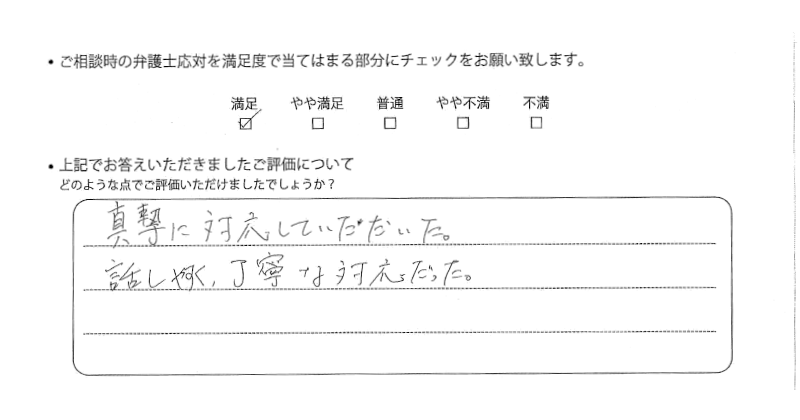 ・ご相談時の弁護士応対を満足度で当てはまる部分にチェックをお願い致します。
満足 やや満足 普通 やや不満 不満
☑ □ □ □ □
・上記でお答えいただきましたご評価について
どのような点でご評価いただけましたでしょうか？
真摯に対応していただいた。
話しやすく、丁寧な対応だった。